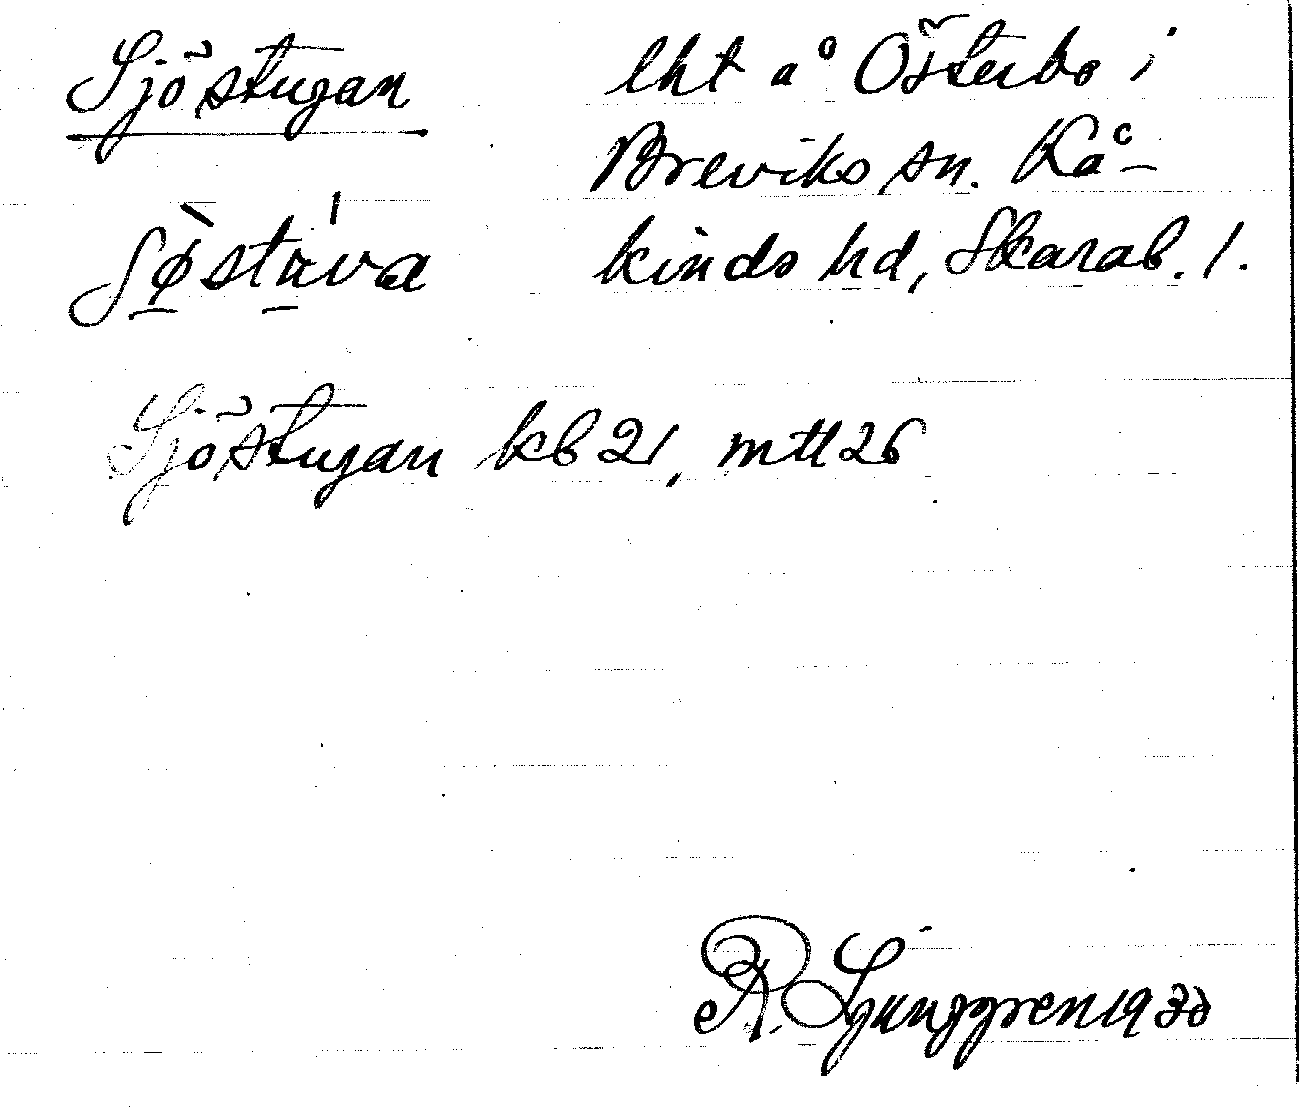 Sjöstugan lht å Österbo i
Breviks sn. Kå-
Søstuva kinds hd, Skarab. l.
Sjöstugan kb 21, mtl 26
R. Ljunggren 1930